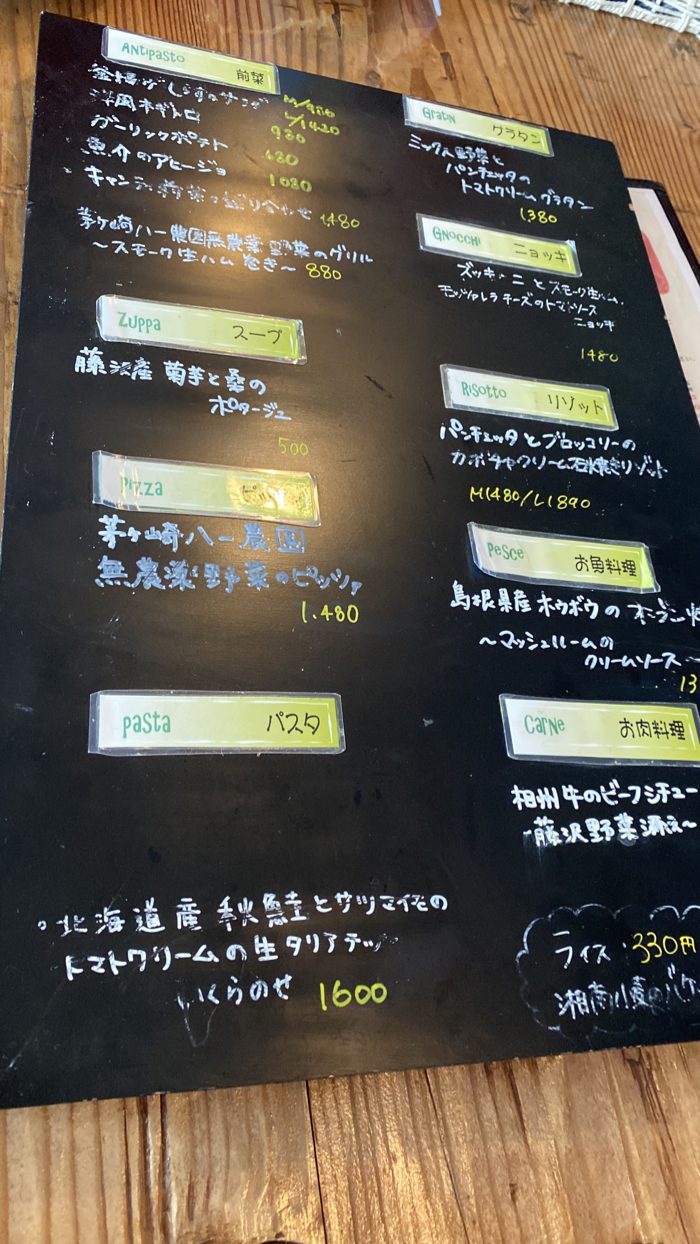 Antipasto 前菜
釜揚げしらすのサラダ M/980
L/1420
洋風ネギトロ 980
ガーリックポテト 680
魚介のアヒージョ 1080
盛り合わせ 1,480
茅ヶ崎八一農園無農薬野菜のグリル
〜スモーク生ハム巻き〜 880
Zuppa スープ
藤沢産 菊芋と
ポタージュ
500
Pizza
茅ヶ崎八一農園
無農薬野菜のピッツァ
1.480
pasta パスタ
・北海道産 秋鮭とサツマイモの
トマトクリームの生タリアテッレ
いくらのせ 1600
Gratin グラタン
ミックス野菜と
パンチェッタの
トマトクリームグラタン
1,380
Gnocchi ニョッキ
ズッキーニとスモーク生ハム、
モッツァレラチーズのトマトソース
ニョッキ
1480
Risotto リゾット
パンチェッタとブロッコリーの
カボチャクリーム石焼きリゾット
M1480/L1890
Pesce お魚料理
島根県産ホウボウのオーブン
〜マッシュルームの
クリームソース〜
13
Carne お肉料理
相州牛のビーフシチュー
藤沢野菜添え〜
ライス・330円
湘南小麦のバケ